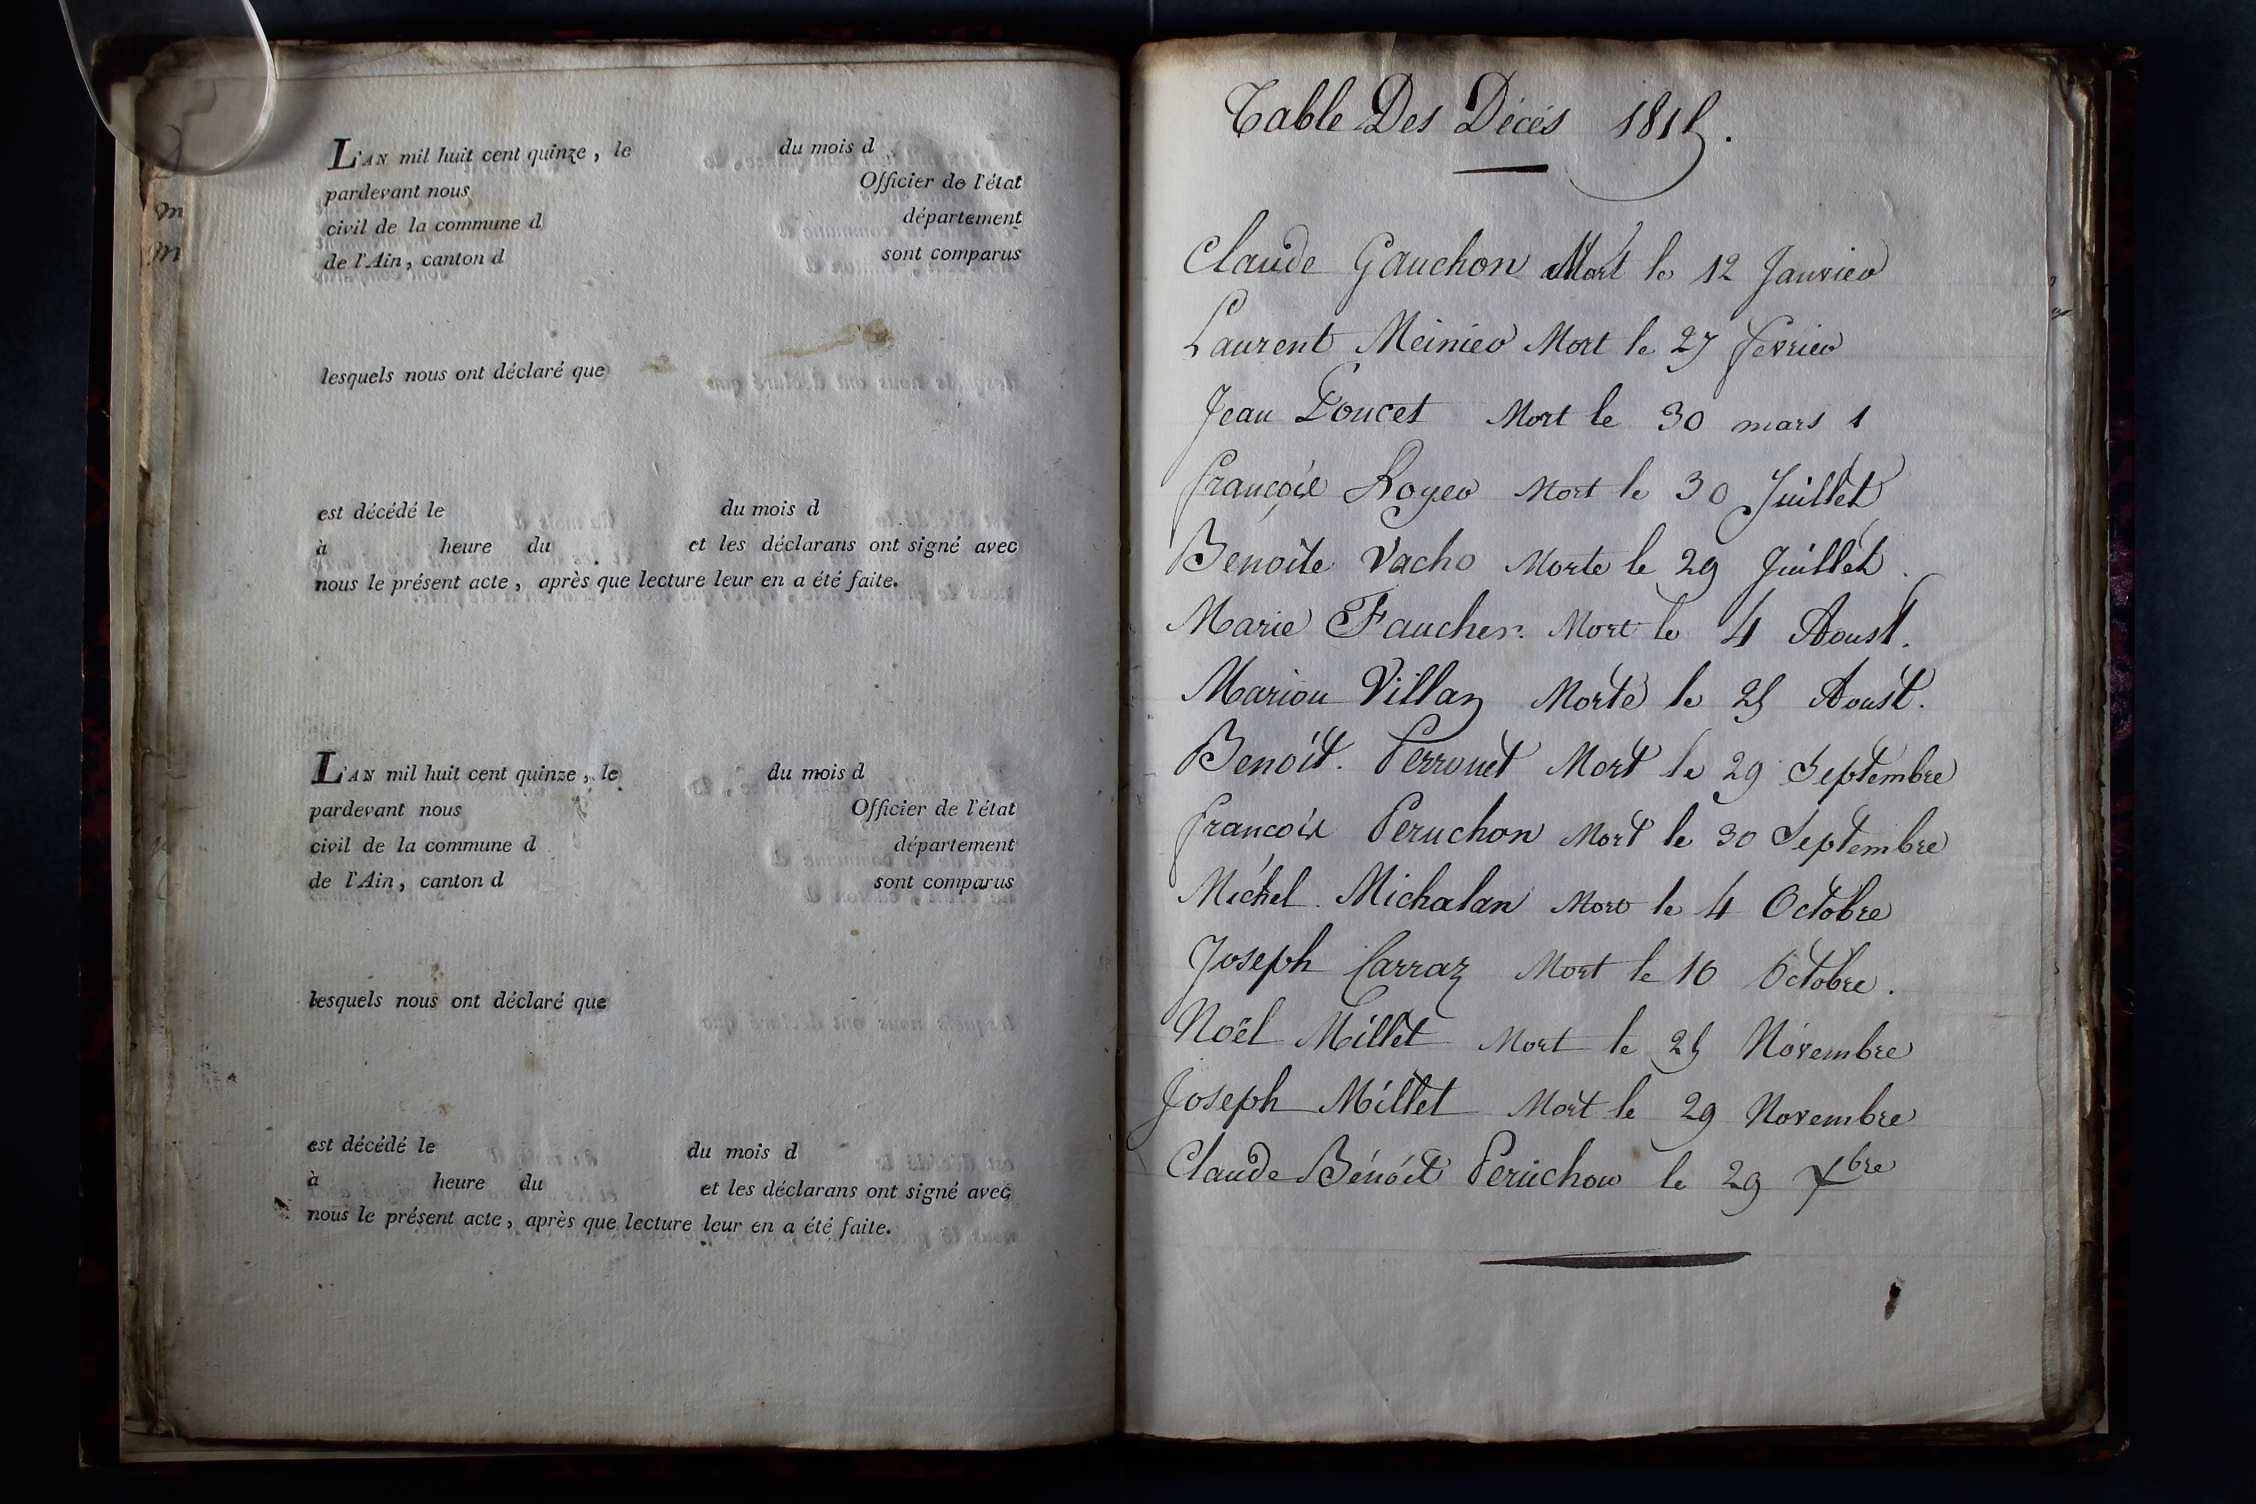 L'AN mil huit cent quinze, le du mois d
pardevant nous Officier de l'état
civil de la commune d département
de l'Ain, canton d sont comparus
lesquels nous ont déclaré que
est décédé le du mois d
à heure du et les déclarans ont signé avec
nous le présent acte, après que lecture leur en a été faite.
L'AN mil huit cent quinze, le du mois d
pardevant nous Officier de l'état
civil de la commune d département
de l'Ain, canton d sont comparus
lesquels nous ont déclaré que
est décédé le du mois d
à heure du et les déclarans ont signé avec
nous le présent acte, après que lecture leur en a été faite.
Table Des Décés 1815.
Claude Gauchon Mort le 12 Janvier
Laurent Meinier Mort le 27 fevrier
Jean Poucet Mort le 30 mars 1
françois Royer Mort le 30 Juillet
Benoite Vacho Morte le 29 Juillet.
Marie Faucher. Mort le 4 Aoust.
Mariou Villaz Morte le 25 Aoust.
Benoit. Perrouet Mort le 29 Septembre
francois Peruchon Mort le 30 Septembre
Michel. Michalan Mort le 4 Octobre
Joseph Carraz Mort le 16 Octobre.
Noël Millet Mort le 25 Novembre
Joseph Millet Mort le 29 Novembre
Claude Bénoit Peruchon le 29 Xbre